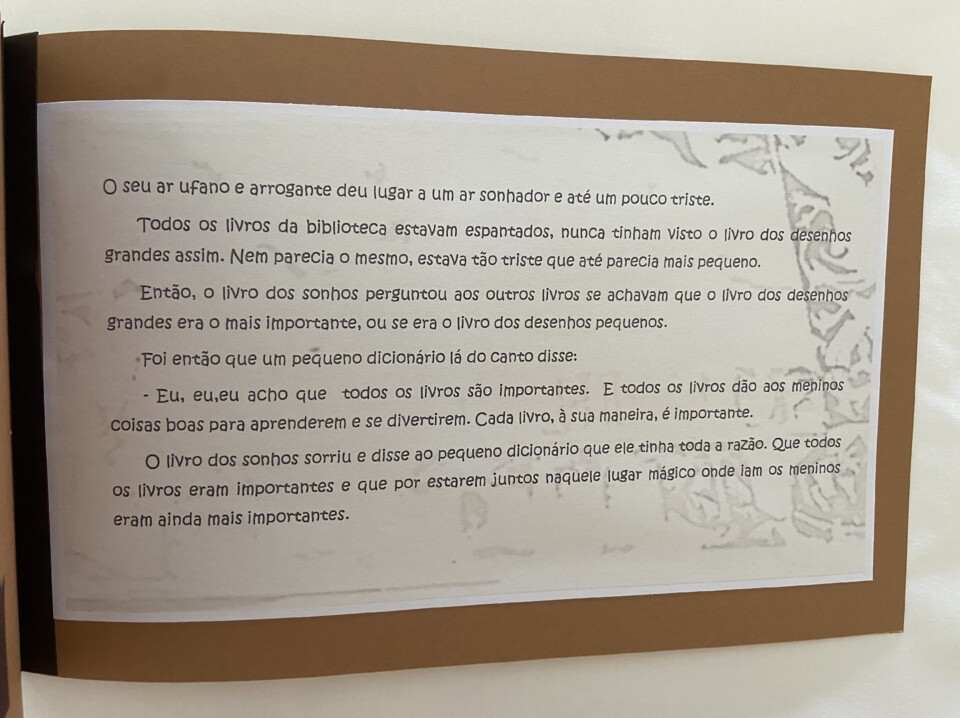 O seu ar ufano e arrogante deu lugar a um ar sonhador e até um pouco triste.
Todos os livros da biblioteca estavam espantados, nunca tinham visto o livro dos desenhos
grandes assim. Nem parecia o mesmo, estava tão triste que até parecia mais pequeno.
Então, o livro dos sonhos perguntou aos outros livros se achavam que o livro dos desenhos
grandes era o mais importante, ou se era o livro dos desenhos pequenos.
Foi então que um pequeno dicionário lá do canto disse:
- Eu, eu,eu acho que todos os livros são importantes. E todos os livros dão aos meninos
coisas boas para aprenderem e se divertirem. Cada livro, à sua maneira, é importante.
O livro dos sonhos sorriu e disse ao pequeno dicionário que ele tinha toda a razão. Que todos
os livros eram importantes e que por estarem juntos naquele lugar mágico onde iam os meninos
eram ainda mais importantes.